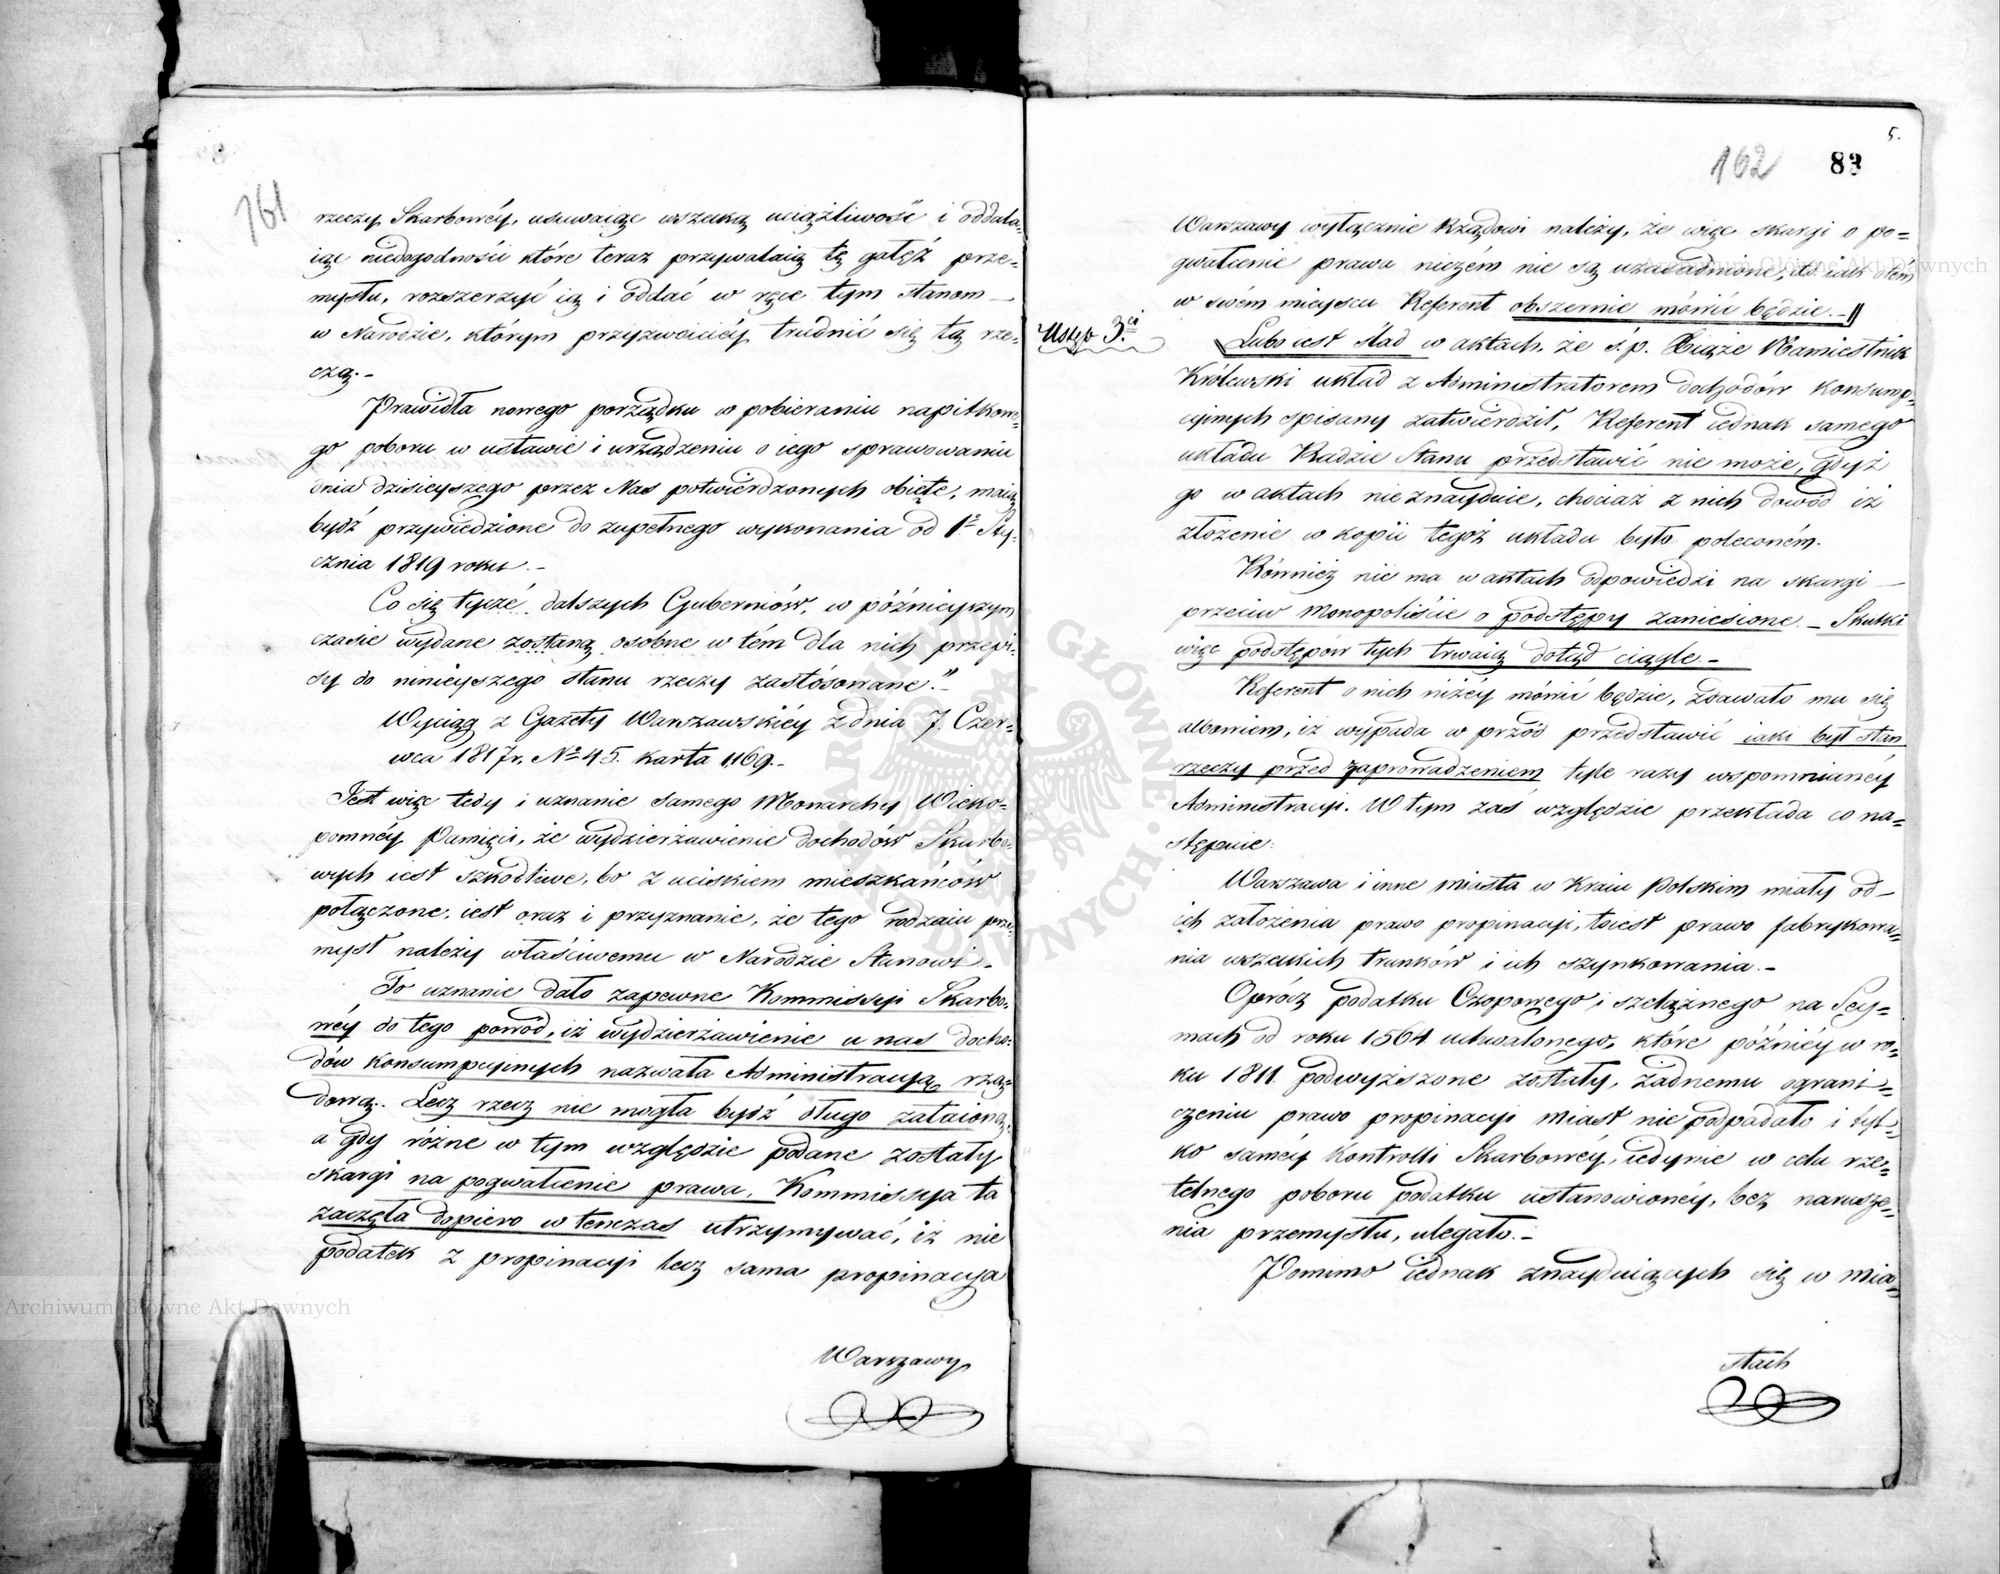 161
rzeczy Skarbowéy, usuwaiąc wszelką uciążliwość i oddala-
iąc niedogodności które teraz przywalaią tę gałęź prze-
mysłu, rozszerzyć ią i oddać w ręce tym stanom —
w Narodzie, którym przyzwoiciéy trudnić się tą rze-
czą. -
Prawidła nowego porządku w pobieraniu napitkowe-
go poboru w ustawie i urządzeniu o iego sprawowaniu
dnia dzisieyszego przez Nas potwierdzonych obięte, maią
bydź przywiedzione do zupełnego wykonania od 1º Sty-
cznia 1819 roku. -
Co się tycze dalszych Guberniów, w póznieyszym
czasie wydane zostaną osobne w tém dla nich przepi-
sy do ninieyszego stanu rzeczy zastósowane." -
Wyciąg z Gazety Warszawskiéy z dnia 7. Czer-
wca 1817 r. Nº 45. karta 1169. -
Jest więc tedy i uznanie samego Monarchy Wieko-
pomnéy Pamięci, że wydzierżawienie dochodów Skarbo-
wych iest szkodliwe, bo z uciskiem mieszkańców
połączone, iest oraz i przyznanie, że tego rodzaiu prze-
mysł należy właściwemu w Narodzie Stanowi. -
To uznanie dało zapewne Kommissyi Skarbo-
wéy do tego powód, iż wydzierżawienie u nas docho-
dów konsumpcyinych nazwała Administracyą rzą-
dową. Lecz rzecz nie mogła bydź długo zataioną,
a gdy różne w tym względzie podane zostały
skargi na pogwałcenie prawa, Kommissya ta
zaczęła dopiero w tenczas utrzymywać, iż nie
podatek z propinacyi lecz sama propinacya
Warszawy
5.
162 83
Warszawy wyłącznie Rządowi należy, że więc skargi o po=
gwałcenie prawa niczém nie są uzasadnione,
w swém mieyscu Referent obszernie mówić będzie. -
Ustęp 3ci
Lubo iest ślad w aktach, że ś. p. Xiąże Namiestnik
Królewski układ z Administratorem dochodów konsump=
cyinych spisany zatwierdził, Referent iednak samego
układu Radzie Stanu przedstawić nie może, gdyż
go w aktach nieznayduie, chociaż z nich dowód iż
złożenie w kopii tegoż układu było poleconém.
Również nie ma w aktach odpowiedzi na skargi —
przeciw Monopoliście o podstępy zaniesione. - Skutki
więc podstępów tych trwaią dotąd ciągle. -
Referent o nich niżéy mówić będzie, zdawało mu się
albowiem, iż wypada w przód przedstawić iaki był stan
rzeczy przed zaprowadzeniem tyle razy wspomnianéy
Administracyi. W tym zaś względzie przekłada co na=
stępuie:
Warszawa i inne miasta w Kraiu Polskim miały od—
ich założenia prawo propinacyi, toiest prawo fabrykowa=
nia wszelkich trunków i ich szynkowania. -
Oprócz podatku Czopowego i szelążnego na Sey=
mach od roku 1564 uchwalonego, które późniéy w ro=
ku 1811 podwyższone zostały, żadnemu ograni=
czeniu prawo propinacyi miast nie podpadało i tyl=
ko saméy kontrolli Skarbowéy, iedynie w celu rze=
telnego poboru podatku ustanowionéy, bez narusze=
nia przemysłu, ulegało. -
Pomimo iednak znayduiących się w mia=
stach
Archiwum Główne Akt Dawnych
Archiwum Główne Akt Dawnych
ARCHIWUM GŁÓWNE AKT DAWNYCH